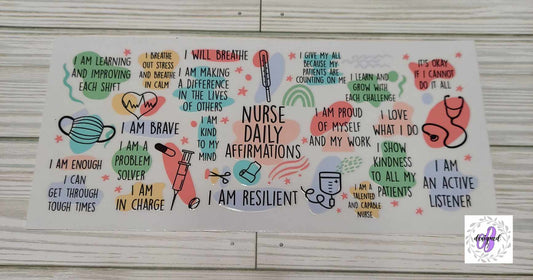 I AM LEARNING
AND IMPROVING
EACH SHIFT
I BREATHE
OUT STRESS
AND BREATHE
IN CALM
I WILL BREATHE
I AM MAKING
A DIFFERENCE
IN THE LIVES
OF OTHERS
I GIVE MY ALL
BECAUSE MY
PATIENTS ARE
COUNTING ON ME
I LEARN AND
GROW WITH
EACH CHALLENGE
IT'S OKAY
IF I CANNOT
DO IT ALL
I AM BRAVE
I AM
KIND
TO MY
MIND
NURSE
DAILY
AFFIRMATIONS
I AM PROUD
OF MYSELF
AND MY WORK
I LOVE
WHAT I DO
I SHOW
KINDNESS
TO ALL MY
PATIENTS
I AM ENOUGH
I CAN
GET THROUGH
TOUGH TIMES
I AM A
PROBLEM
SOLVER
I AM
IN CHARGE
I AM RESILIENT
I AM A
TALENTED
AND CAPABLE
NURSE
I AM
AN ACTIVE
LISTENER